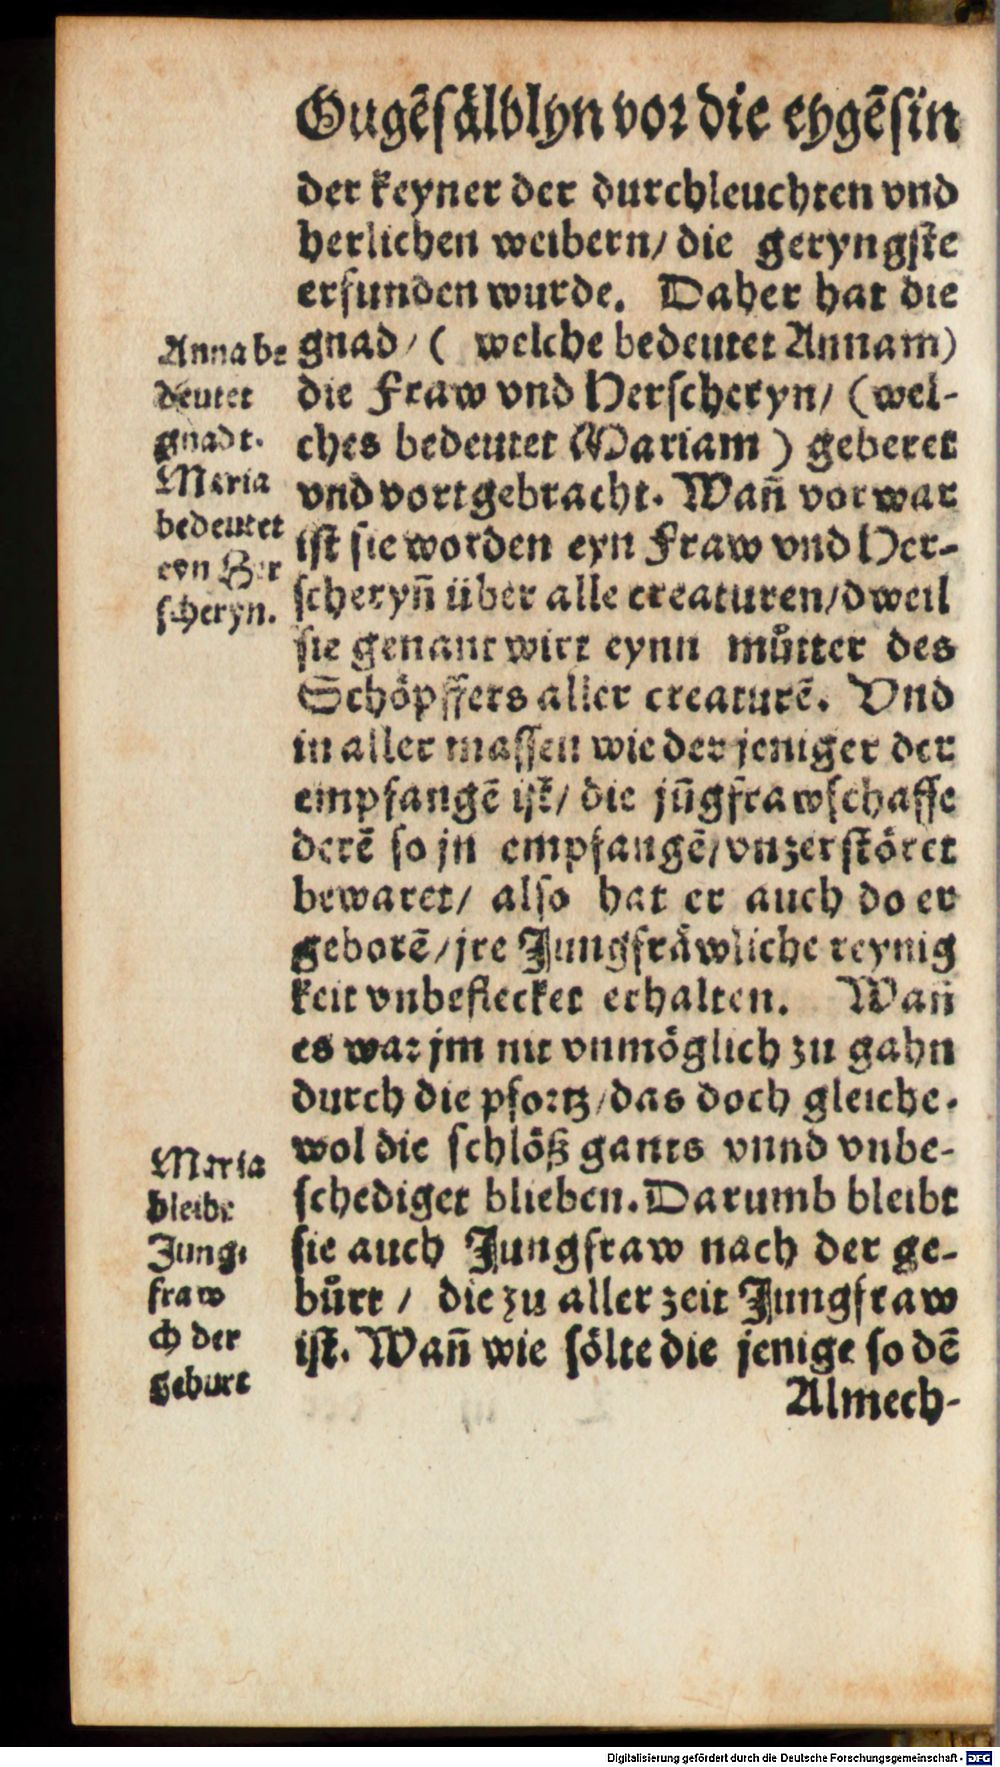 Ougẽsälblyn vor die eygẽsin
der keyner der durchleuchten vnd
herlichen weibern/ die geryngste
erfunden wurde. Daher hat die
gnad/ ( welche bedeutet Annam)
die Fraw vnd Herscheryn/ (wel-
ches bedeutet Mariam ) geberet
vnd vortgebracht. Wañ vorwar
ist sie worden eyn Fraw vnd Her-
scheryñ über alle creaturen/dweil
sie genant wirt eynn můtter des
Schöpffers aller creaturẽ. Vnd
in aller massen wie der jeniger der
empfangẽ ist/ die jũgfrawschafft
derẽ so jn empfangẽ/vnzerstöret
bewaret/ also hat er auch do er
geborẽ/jre Jungfräwliche reynig
keit vnbeflecket erhalten. Wañ
es war jm nit vnmöglich zu gahn
durch die pfortz/das doch gleiche-
wol die schlöß gants vnnd vnbe-
schediget blieben. Darumb bleibt
sie auch Jungfraw nach der ge-
bůrt / die zu aller zeit Jungfraw
ist. Wañ wie sölte die jenige so dẽ
Almech-
Anna be
deutet
gnadt.
Maria
bedeutet
eyn Her
scheryn.
Maria
bleibt
Jung-
fraw
ch der
geburt
Digitalisierung gefördert durch die Deutsche Forschungsgemeinschaft - DFG